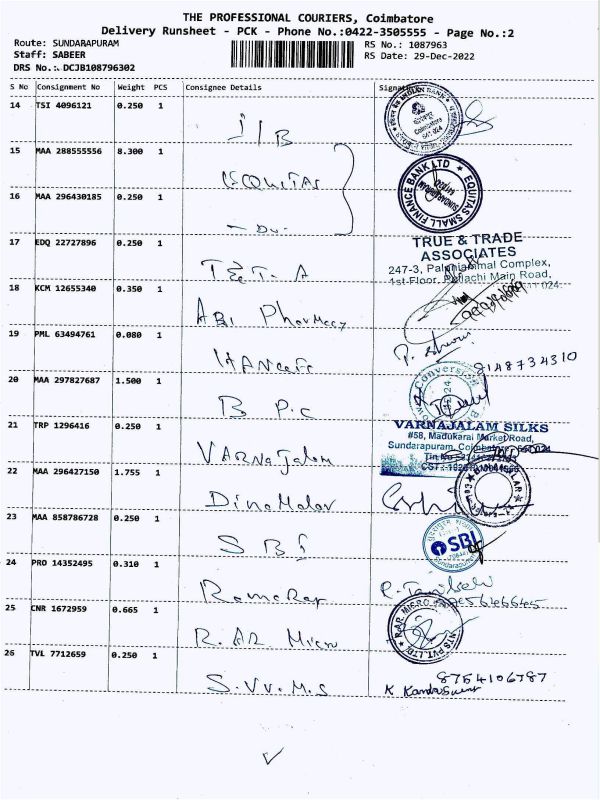 THE PROFESSIONAL COURIERS, Coimbatore
Delivery Runsheet - PCK - Phone No.:0422-3505555 - Page No.:2
Route: SUNDARAPURAM
RS No.: 1087963
Staff: SABEER
RS Date: 29-Dec-2022
DRS No.: DCJB108796302
S No Consignment No Weight PCS Consignee Details Signature
14 TSI 4096121 0.250 1
IIB
15 MAA 288555556 8.300 1
EQUITAS
EQUITAS SMALL FINANCE BANK LTD
16 MAA 296430185 0.250 1
- Do -
17 EDQ 22727896 0.250 1
T & T. A
TRUE & TRADE
ASSOCIATES
247-3, Palaniammal Complex,
1st-Floor, Pollachi Main Road,
18 KCM 12655340 0.350 1
ABI Pharmacy
19 PML 63494761 0.080 1
HANeefa
8148734310
20 MAA 297827687 1.500 1
B P.C
21 TRP 1296416 0.250 1
VARNAJalam
VARNAJALAM SILKS
#58, Madukarai Market Road,
Sundarapuram, Coimbatore
22 MAA 296427150 1.755 1
DinaMalar
23 MAA 858786728 0.250 1
SBI
SBI
Sundarapuram
24 PRO 14352495 0.310 1
RamaRap
25 CNR 1672959 0.665 1
R. AR Micro
26 TVL 7712659 0.250 1
S.VV.M.S
8754106787